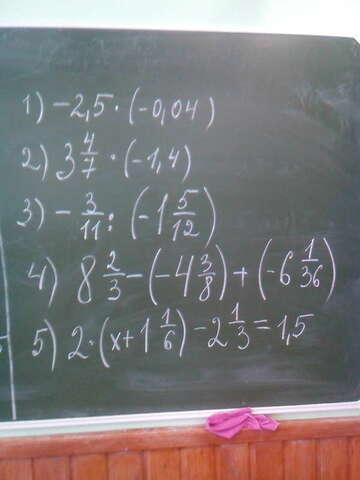 1) -2,5 · (-0,04)
2) 3 4/7 · (-1,4)
3) - 3/11 : (-1 5/12)
4) 8 2/3 - (-4 3/8) + (-6 1/36)
5) 2 · (x + 1 1/6) - 2 1/3 = 1,5